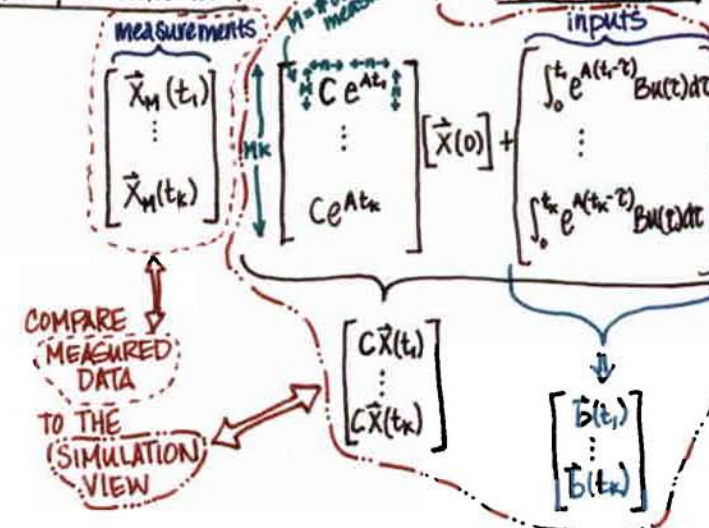 measurements
inputs
X⃗_M(t₁)
⋮
X⃗_M(t_K)
MK
n n
M n
C e^{At₁}
⋮
Ce^{At_K}
[X⃗(0)] +
∫₀^{t₁} e^{A(t₁-τ)} Bu(τ)dτ
⋮
∫₀^{t_K} e^{A(t_K-τ)} Bu(τ)dτ
COMPARE
MEASURED
DATA
TO THE
SIMULATION
VIEW
CX⃗(t₁)
⋮
CX⃗(t_K)
b⃗(t₁)
⋮
b⃗(t_K)